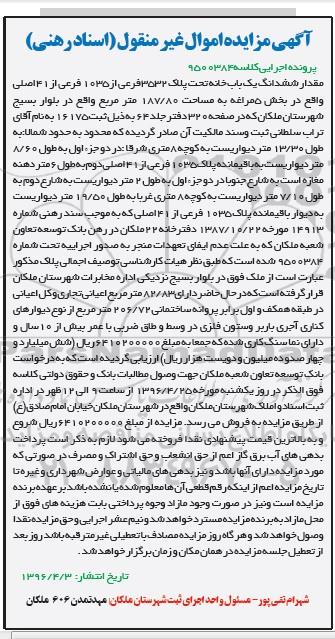 آگهی مزایده اموال غیر منقول (اسناد رهنی)
پرونده اجرایی کلاسه ۹۵۰۰۳۸۴
مقدار ششدانگ یک باب خانه تحت پلاک ۳۵۳۲ فرعی از ۱۰۳۵ فرعی از ۴۱ اصلی
واقع در بخش ۵ مراغه به مساحت ۱۸۷/۸۰ متر مربع واقع در بلوار بسیج
شهرستان ملکان که در صفحه ۳۲۰ دفتر جلد ۶۴ به ذیل ثبت ۱۶۱۷۵ به نام آقای
تراب سلطانی ثبت وسند مالکیت آن صادر گردیده که محدود به حدود شمالا: به
طول ۱۳/۳۰ متر دیواریست به کوچه ۸ متری شرقا: در دو جزء اول به طول ۸/۶۰
متر دیواریست به باقیمانده پلاک ۱۰۳۵ فرعی از ۴۱ اصلی دوم به طول ۶ متر دهنه
مغازه است به شارع جنوبا در دو جزء اول به طول ۲ متر دیواریست به شارع دوم به
طول ۷/۱۰ متر دیواریست به کوچه ۸ متری غربا به طول ۱۹/۵۰ متر دیواریست
به دیوار باقیمانده پلاک ۱۰۳۵ فرعی از ۴۱ اصلی که به موجب سند رهنی شماره
۱۴۹۱۳ مورخه ۱۳۸۷/۱۰/۲۲ دفترخانه ۲۲ ملکان در رهن بانک توسعه تعاون
شعبه ملکان که به علت عدم ایفای تعهدات منجر به صدور اجراییه تحت شماره
۹۵۰۰۳۸۴ شده است که طبق نظر هیات کارشناسی توصیف اجمالی پلاک مذکور
عبارت است از ملک فوق در بلوار بسیج نزدیکی اداره مخابرات شهرستان ملکان
قرار گرفته است که در حال حاضر دارای ۸۲/۸۳ متر مربع اعیانی تجاری و کل اعیانی
در طبقه همکف و اول برابر پروانه ساختمانی ۲۰۶/۷۲ متر مربع از نوع دیوارهای
کناری آجری باربر وستون فلزی در وسط و طاق ضربی با عمر بیش از ۱۰ سال و
دارای نما سنگ کاری شده که جمعا به مبلغ ۶۴۱۰۲۰۰۰۰۰ ریال (شش میلیارد و
چهار صد و ده میلیون و دویست هزار ریال) ارزیابی گردیده است که به درخواست
بانک توسعه تعاون شعبه ملکان جهت وصول مطالبات بانک و حقوق دولتی کلاسه
فوق الذکر در روز یکشنبه مورخه ۱۳۹۶/۴/۲۵ از ساعت ۹ الی ۱۲ ظهر در اداره
ثبت اسناد و املاک شهرستان ملکان واقع در شهرستان ملکان خیابان امام صادق (ع)
از طریق مزایده به فروش می رسد. مزایده از مبلغ ۶۴۱۰۲۰۰۰۰۰ ریال شروع
و به بالاترین قیمت پیشنهادی نقدا فروخته می شود لازم به ذکر است پرداخت
بدهی های آب برق گاز اعم از حق انشعاب و حق اشتراک و مصرف در صورتی که
مورد مزایده دارای آنها باشد و نیز بدهی های مالیاتی و عوارض شهرداری و غیره تا
تاریخ مزایده اعم از اینکه رقم قطعی آن ها معلوم شده یا نشده باشد بر عهده برنده
مزایده است ونیز در صورت وجود مازاد وجوه پرداختی بابت هزینه های فوق از
محل مازاد به برنده مزایده مسترد خواهد شد و نیم عشر اجرایی و حق مزایده نقدا
وصول خواهد شد و هر گاه روز مزایده مصادف با تعطیلی غیر مترقبه باشد روز بعد
از تعطیل جلسه مزایده در همان مکان و زمان برگزار خواهد شد.
تاریخ انتشار: ۱۳۹۶/۴/۳
شهرام تقی پور - مسئول واحد اجرای ثبت شهرستان ملکان: مهدتمدن ۶۰۶ ملکان